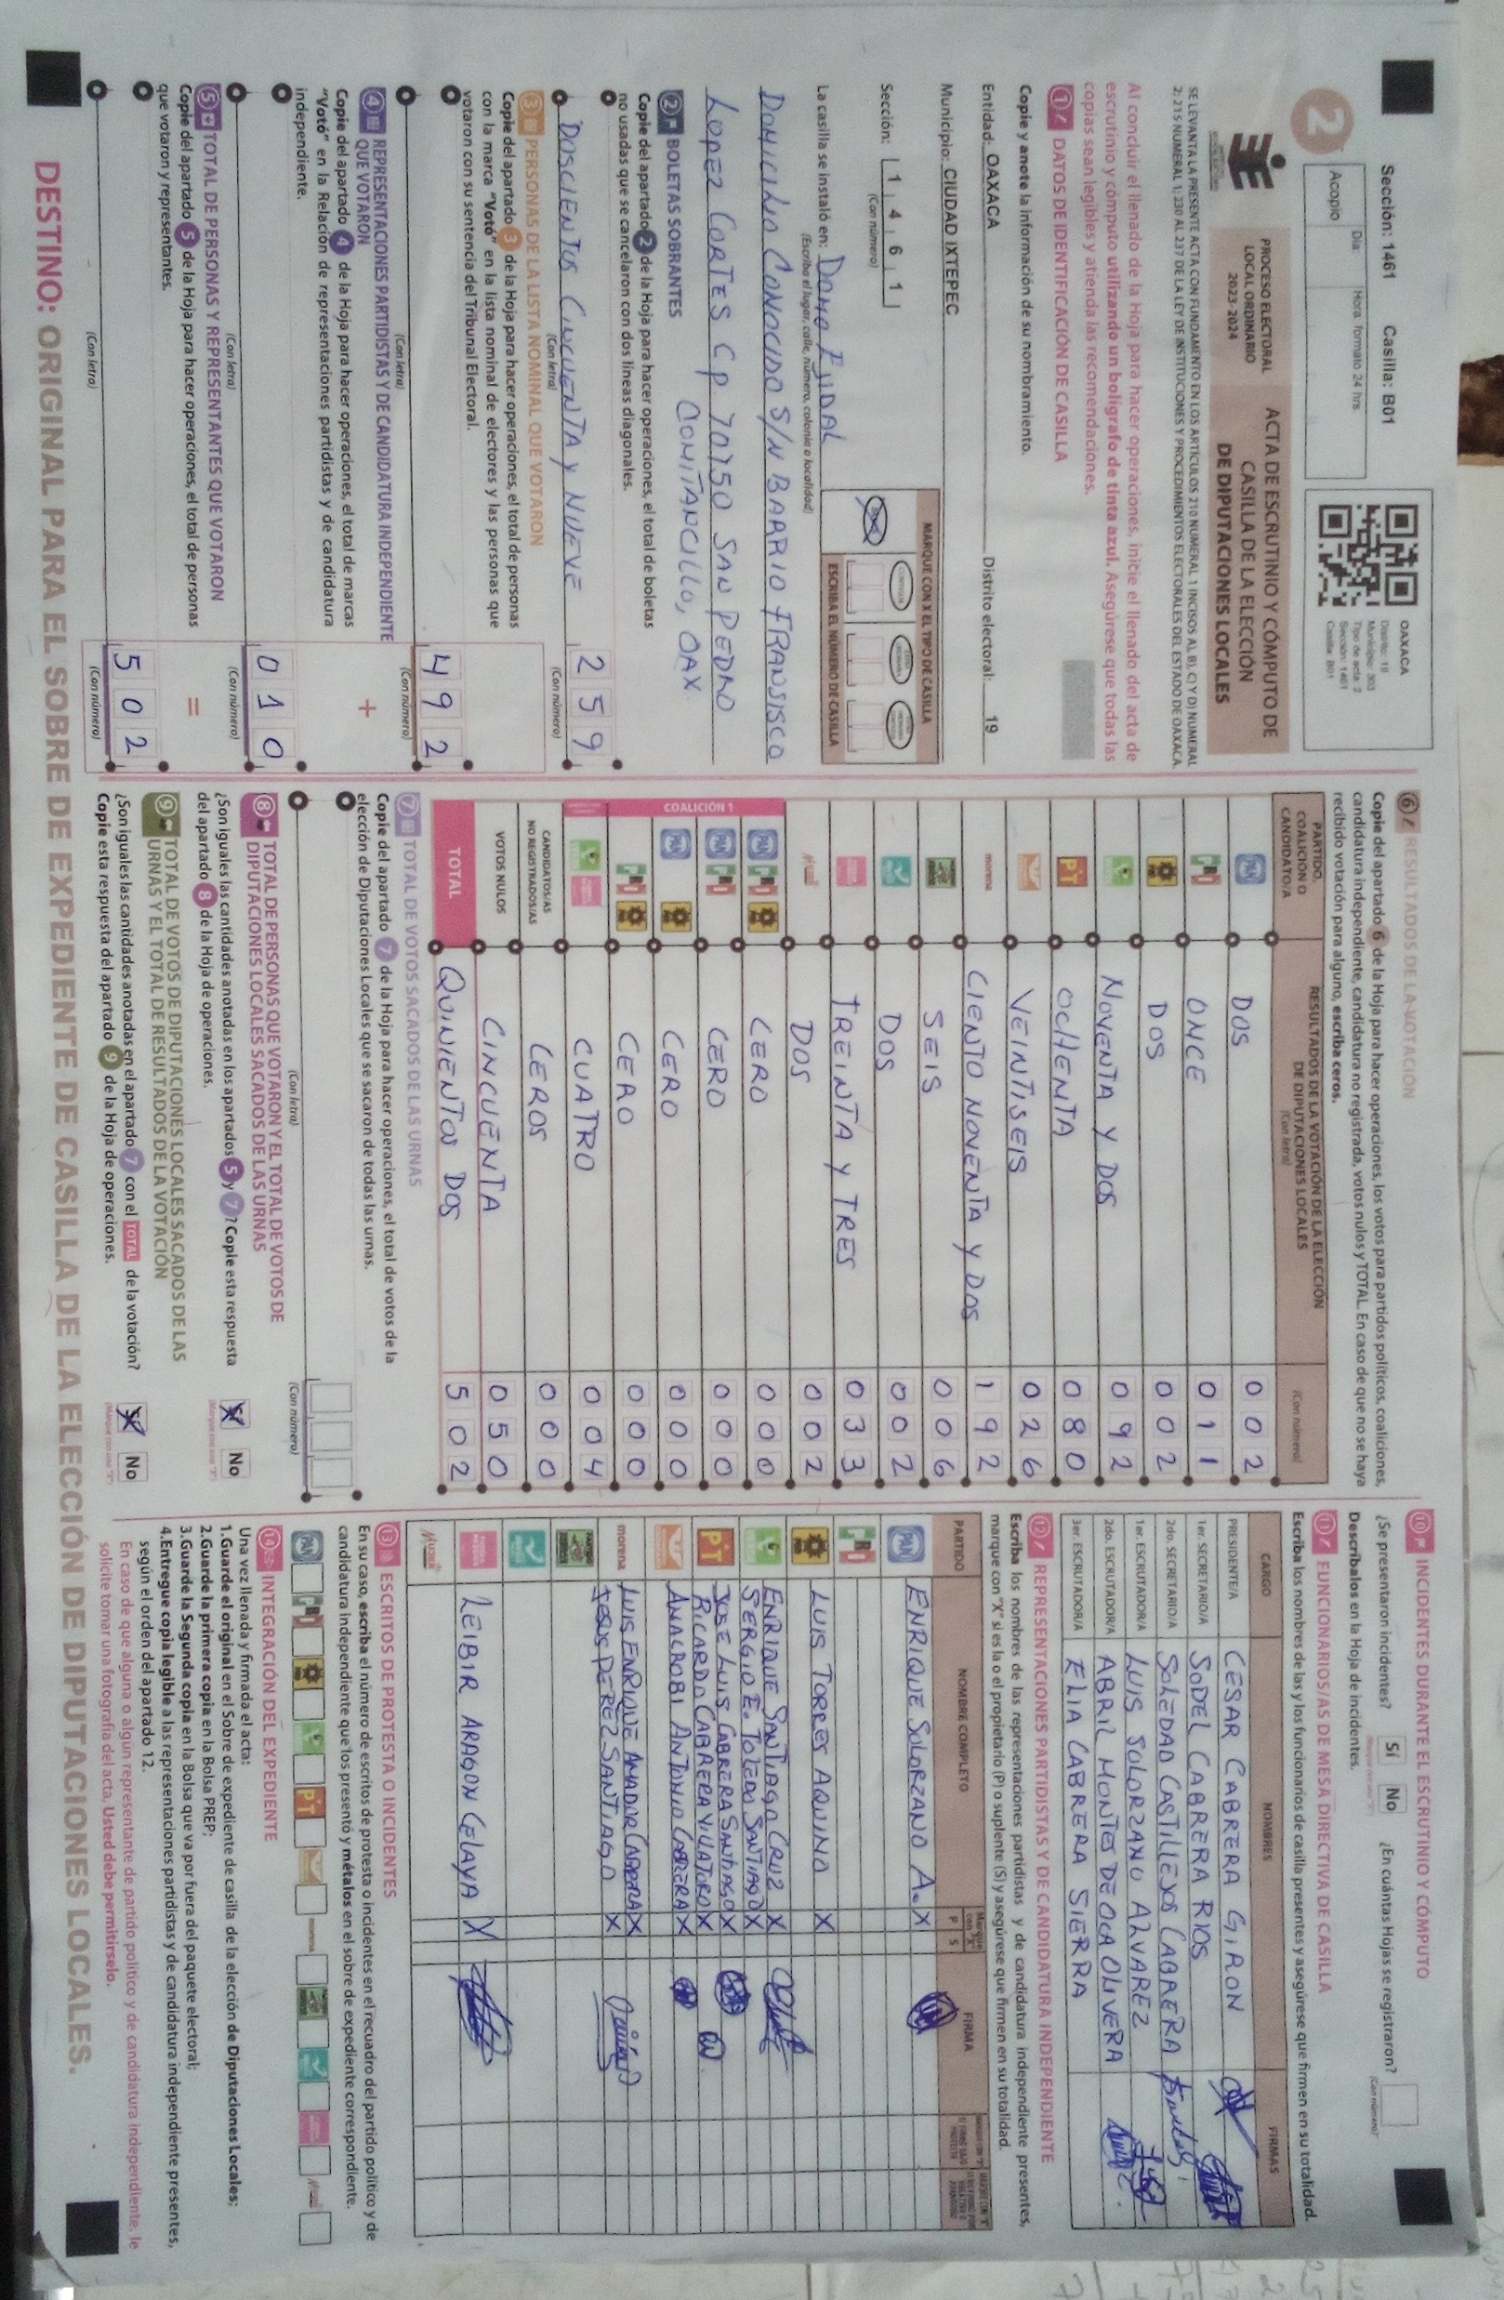 Sección: 1461 Casilla: B01
Día: Hora formato 24 hrs
Acopio
2
OAXACA
Distrito: 19
Municipio: 303
Tipo de acta: 2
Sección: 1461
Casilla: B01
PROCESO ELECTORAL
LOCAL ORDINARIO
2023-2024
ACTA DE ESCRUTINIO Y CÓMPUTO DE
CASILLA DE LA ELECCIÓN
DE DIPUTACIONES LOCALES
SE LEVANTA LA PRESENTE ACTA CON FUNDAMENTO EN LOS ARTÍCULOS 210 NUMERAL 1 INCISOS A), B), C) Y D) NUMERAL
2; 215 NUMERAL 1; 230 AL 237 DE LA LEY DE INSTITUCIONES Y PROCEDIMIENTOS ELECTORALES DEL ESTADO DE OAXACA.
Al concluir el llenado de la Hoja para hacer operaciones, inicie el llenado del acta de
escrutinio y cómputo utilizando un bolígrafo de tinta azul. Asegúrese que todas las
copias sean legibles y atienda las recomendaciones.
1 DATOS DE IDENTIFICACIÓN DE CASILLA
Copie y anote la información de su nombramiento.
Entidad: OAXACA Distrito electoral: 19
Municipio: CIUDAD IXTEPEC
Sección: 1 4 6 1
(Con número)
MARQUE CON X EL TIPO DE CASILLA
ESCRIBA EL NÚMERO DE CASILLA
La casilla se instaló en: DOMO EJIDAL
(Escriba el lugar, calle, número, colonia o localidad)
DOMICILIO CONOCIDO S/N BARRIO FRANSISCO
LOPEZ CORTES CP 70750 SAN PEDRO
COMITANCILLO, OAX
2 BOLETAS SOBRANTES
Copie del apartado 2 de la Hoja para hacer operaciones, el total de boletas
no usadas que se cancelaron con dos líneas diagonales.
DOSCIENTOS CINCUENTA Y NUEVE 2 5 9
(Con letra) (Con número)
3 PERSONAS DE LA LISTA NOMINAL QUE VOTARON
Copie del apartado 3 de la Hoja para hacer operaciones, el total de personas
con la marca "Votó" en la lista nominal de electores y las personas que
votaron con su sentencia del Tribunal Electoral.
4 9 2
(Con letra) (Con número)
4 REPRESENTACIONES PARTIDISTAS Y DE CANDIDATURA INDEPENDIENTE
QUE VOTARON
+
Copie del apartado 4 de la Hoja para hacer operaciones, el total de marcas
"Votó" en la Relación de representaciones partidistas y de candidatura
independiente.
0 1 0
(Con letra) (Con número)
5 TOTAL DE PERSONAS Y REPRESENTANTES QUE VOTARON
=
Copie del apartado 5 de la Hoja para hacer operaciones, el total de personas
que votaron y representantes.
5 0 2
(Con letra) (Con número)
6 RESULTADOS DE LA VOTACIÓN
Copie del apartado 6 de la Hoja para hacer operaciones, los votos para partidos políticos, coaliciones,
candidatura independiente, candidatura no registrada, votos nulos y TOTAL. En caso de que no se haya
recibido votación para alguno, escriba ceros.
PARTIDO,
COALICIÓN O
CANDIDATO/A
RESULTADOS DE LA VOTACIÓN DE LA ELECCIÓN
DE DIPUTACIONES LOCALES
(Con letra)
(Con número)
PAN DOS 0 0 2
PRI ONCE 0 1 1
PRD DOS 0 0 2
NOVENTA Y DOS 0 9 2
PT OCHENTA 0 8 0
VEINTISEIS 0 2 6
morena CIENTO NOVENTA Y DOS 1 9 2
SEIS 0 0 6
DOS 0 0 2
TREINTA Y TRES 0 3 3
DOS 0 0 2
COALICIÓN 1
PAN PRI PRD CERO 0 0 0
PAN PRI CERO 0 0 0
PAN PRD CERO 0 0 0
PRI PRD CERO 0 0 0
CUATRO 0 0 4
CANDIDATOS/AS
NO REGISTRADOS/AS CEROS 0 0 0
VOTOS NULOS CINCUENTA 0 5 0
TOTAL QUINIENTOS DOS 5 0 2
7 TOTAL DE VOTOS SACADOS DE LAS URNAS
Copie del apartado 7 de la Hoja para hacer operaciones, el total de votos de la
elección de Diputaciones Locales que se sacaron de todas las urnas.
(Con letra) (Con número)
8 TOTAL DE PERSONAS QUE VOTARON Y EL TOTAL DE VOTOS DE
DIPUTACIONES LOCALES SACADOS DE LAS URNAS
¿Son iguales las cantidades anotadas en los apartados 5 y 7? Copie esta respuesta
del apartado 8 de la Hoja de operaciones.
Sí No
9 TOTAL DE VOTOS DE DIPUTACIONES LOCALES SACADOS DE LAS
URNAS Y EL TOTAL DE RESULTADOS DE LA VOTACIÓN
¿Son iguales las cantidades anotadas en el apartado 7 con el TOTAL de la votación?
Copie esta respuesta del apartado 9 de la Hoja de operaciones.
Sí No
10 INCIDENTES DURANTE EL ESCRUTINIO Y CÓMPUTO
¿Se presentaron incidentes? Sí No ¿En cuántas Hojas se registraron?
(Con número)
Descríbalos en la Hoja de incidentes.
11 FUNCIONARIOS/AS DE MESA DIRECTIVA DE CASILLA
Escriba los nombres de las y los funcionarios de casilla presentes y asegúrese que firmen en su totalidad.
CARGO NOMBRES FIRMAS
PRESIDENTE/A CESAR CABRERA GIRON
1er. SECRETARIO/A SODEL CABRERA RIOS
2do. SECRETARIO/A SOLEDAD CASTILLEJOS CABRERA
1er. ESCRUTADOR/A LUIS SOLORZANO ALVAREZ
2do. ESCRUTADOR/A ABRIL MONTES DE OCA OLIVERA
3er. ESCRUTADOR/A ELIA CABRERA SIERRA
12 REPRESENTACIONES PARTIDISTAS Y DE CANDIDATURA INDEPENDIENTE
Escriba los nombres de las representaciones partidistas y de candidatura independiente presentes,
marque con "X" si es la o el propietario (P) o suplente (S) y asegúrese que firmen en su totalidad.
PARTIDO NOMBRE COMPLETO P S FIRMA
PAN ENRIQUE SOLORZANO A. X
PRI
PRD LUIS TORRES AQUINO X
ENRIQUE SANTIAGO CRUZ X
SERGIO E. TOLEDO SANTIAGO X
PT JOSE LUIS CABRERA SANTIAGO X
RICARDO CABRERA VILLATORO X
ANACROBI ANTONIO CABRERA X
morena LUIS ENRIQUE AMADOR CABRERA X
JESUS PEREZ SANTIAGO X
LEIBIR ARAGON CELAYA X
13 ESCRITOS DE PROTESTA O INCIDENTES
En su caso, escriba el número de escritos de protesta o incidentes en el recuadro del partido político y de
candidatura independiente que los presentó y métalos en el sobre de expediente correspondiente.
14 INTEGRACIÓN DEL EXPEDIENTE
Una vez llenada y firmada el acta:
1.Guarde el original en el Sobre de expediente de casilla de la elección de Diputaciones Locales;
2.Guarde la primera copia en la Bolsa PREP;
3.Guarde la Segunda copia en la Bolsa que va por fuera del paquete electoral;
4.Entregue copia legible a las representaciones partidistas y de candidatura independiente presentes,
según el orden del apartado 12.
En caso de que alguna o algún representante de partido político y de candidatura independiente, le
solicite tomar una fotografía del acta, Usted debe permitírselo.
DESTINO: ORIGINAL PARA EL SOBRE DE EXPEDIENTE DE CASILLA DE LA ELECCIÓN DE DIPUTACIONES LOCALES.